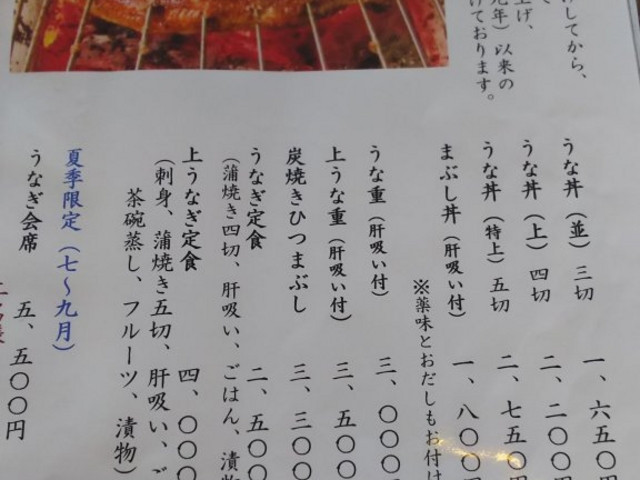 してから、
上げ、
元年）以来の
けております。
うな丼（並）三切 一、六五〇円
うな丼（上）四切 二、二〇〇円
うな丼（特上）五切 二、七五〇円
まぶし丼（肝吸い付） 一、八〇〇円
※薬味とおだしもお付け
うな重（肝吸い付） 三、〇〇〇
上うな重（肝吸い付） 三、五〇〇
炭焼きひつまぶし 三、三〇〇
うなぎ定食 二、五〇〇
（蒲焼き四切、肝吸い、ごはん、漬物
上うなぎ定食 四、〇〇〇
（刺身、蒲焼き五切、肝吸い、ご
茶碗蒸し、フルーツ、漬物）
夏季限定（七〜九月）
うなぎ会席 五、五〇〇円